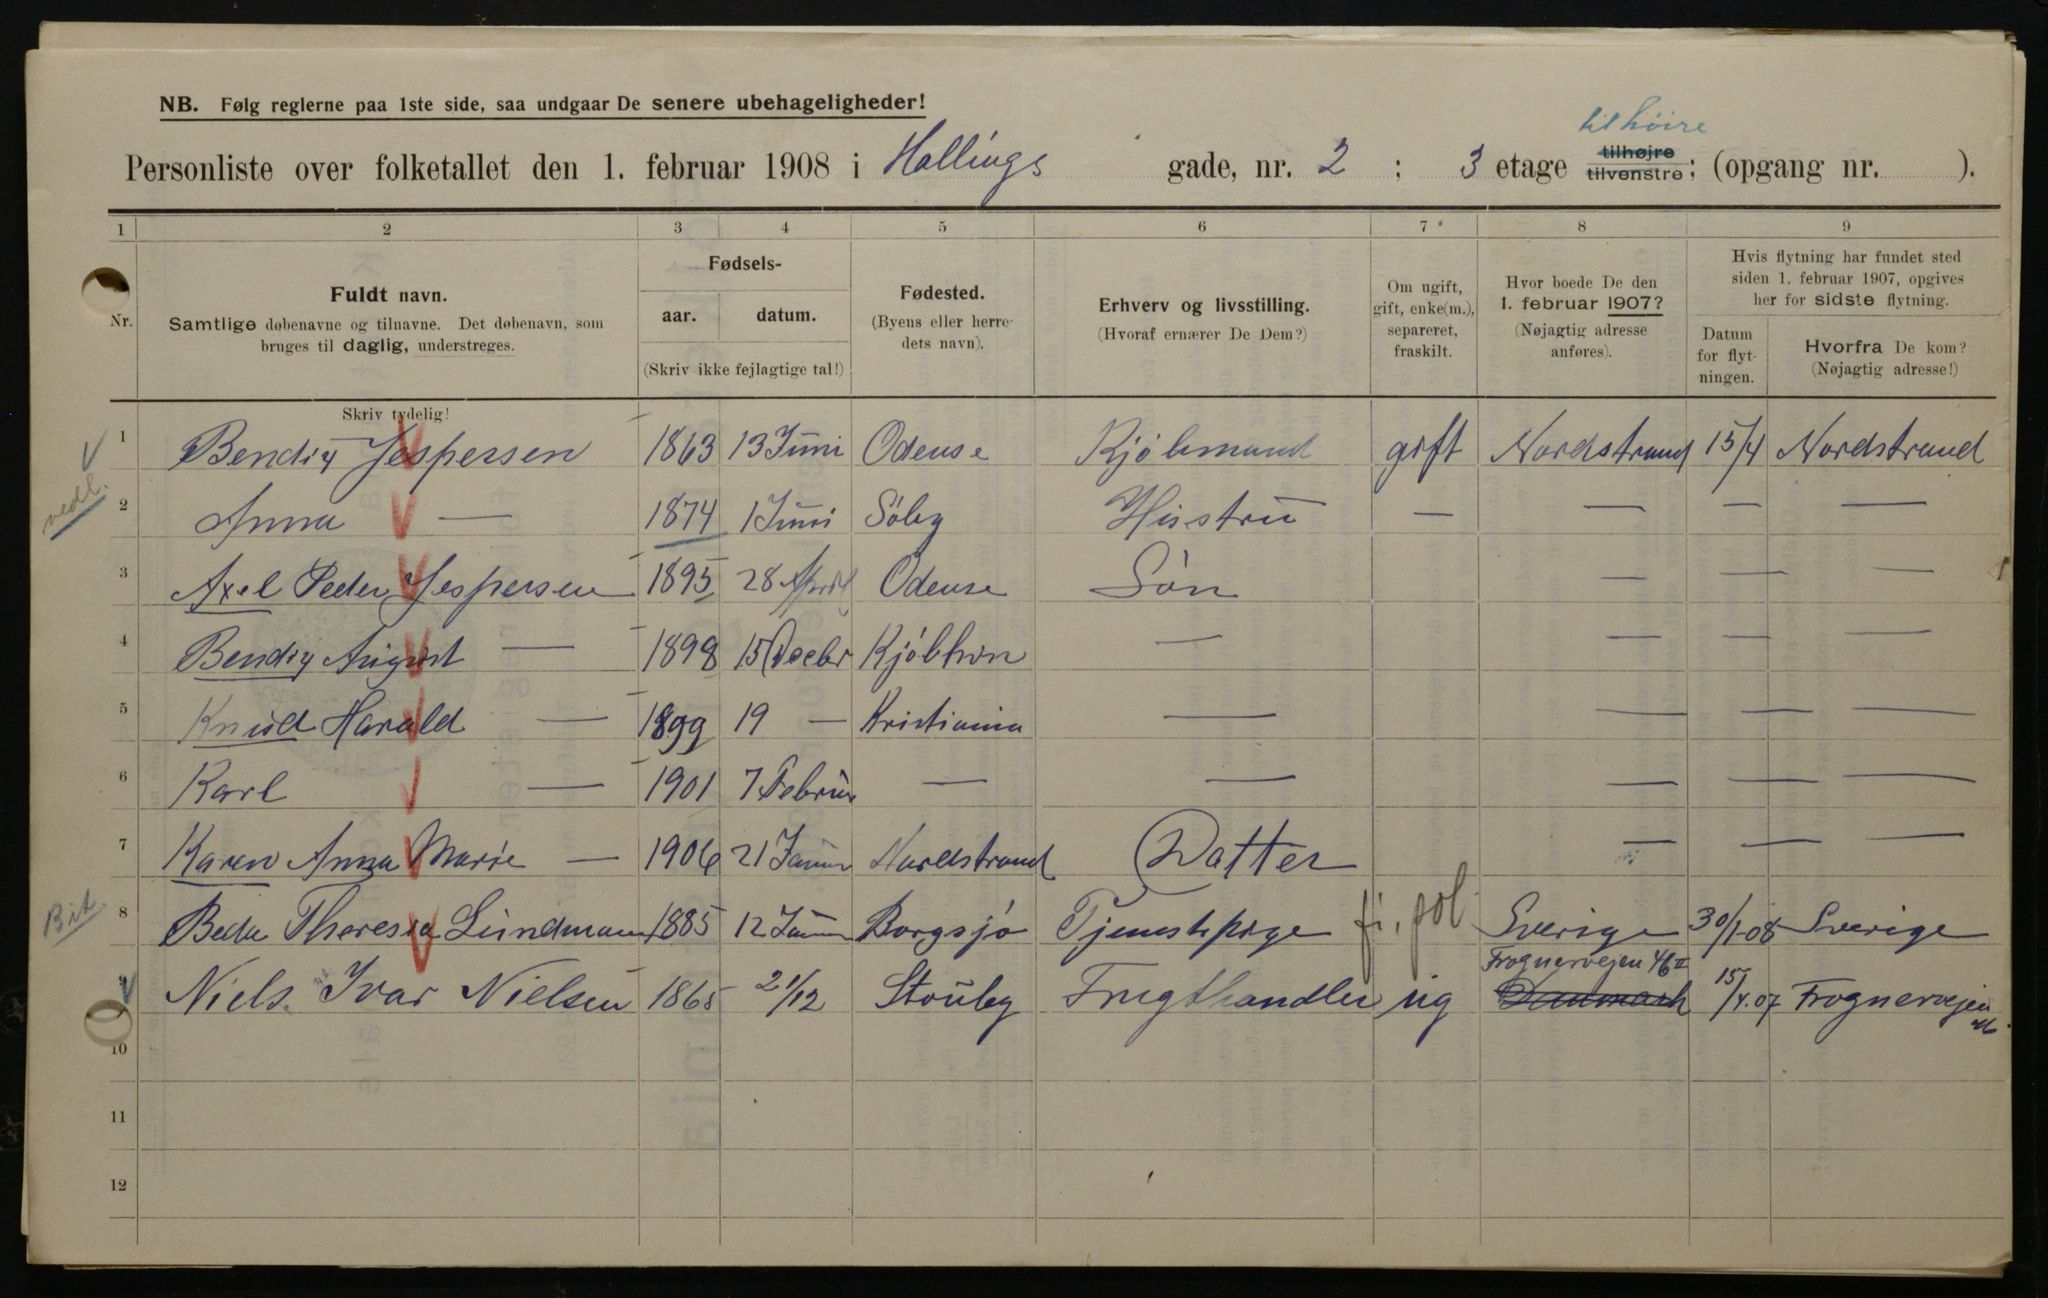 NB. Følg reglerne paa 1ste side, saa undgaar De senere ubehageligheder!
til høire
Personliste over folketallet den 1. februar 1908 i Hallings gade, nr. 2 ; 3 etage tilhøjre tilvenstre; (opgang nr. ).
1 2 3 4 5 6 7 8 9
Nr.
Fuldt navn.
Samtlige døbenavne og tilnavne. Det døbenavn, som
bruges til daglig, understreges.
Skriv tydelig!
Fødsels-
aar. datum.
(Skriv ikke fejlagtige tal!)
Fødested.
(Byens eller herre-
dets navn).
Erhverv og livsstilling.
(Hvoraf ernærer De Dem?)
Om ugift,
gift, enke(m.),
separeret,
fraskilt.
Hvor boede De den
1. februar 1907?
(Nøjagtig adresse
anføres).
Hvis flytning har fundet sted
siden 1. februar 1907, opgives
her for sidste flytning.
Datum
for flyt-
ningen.
Hvorfra De kom?
(Nøjagtig adresse!)
1 Bendix Jespersen 1863 13 Juni Odense Kjölmand gift Nordstrand 15/4 Nordstrand
vedl.
2 Anna — 1874 1 Juni Söby Hustru — — — —
3 Axel Peder Jespersen 1895 28 April Odense Sön — — —
4 Bendix August — 1898 15 Decbr Kjöbhvn — — — —
5 Knud Harald — 1899 19 — Kristiania — — — —
6 Karl — 1901 7 Februar — — — — —
7 Karen Anna Marie — 1906 21 Januar Nordstrand Datter — — —
Bit.
8 Beda Theresia Lundman 1885 12 Januar Borgsjö Tjenestepige fr. pol Sverige 30/1-08 Sverige
Frognervejen 46 II
9 Niels Ivar Nielsen 1865 21/12 Stouby Frugthandler ug Danmark 15/4.07 Frognervejen
46.
10
11
12